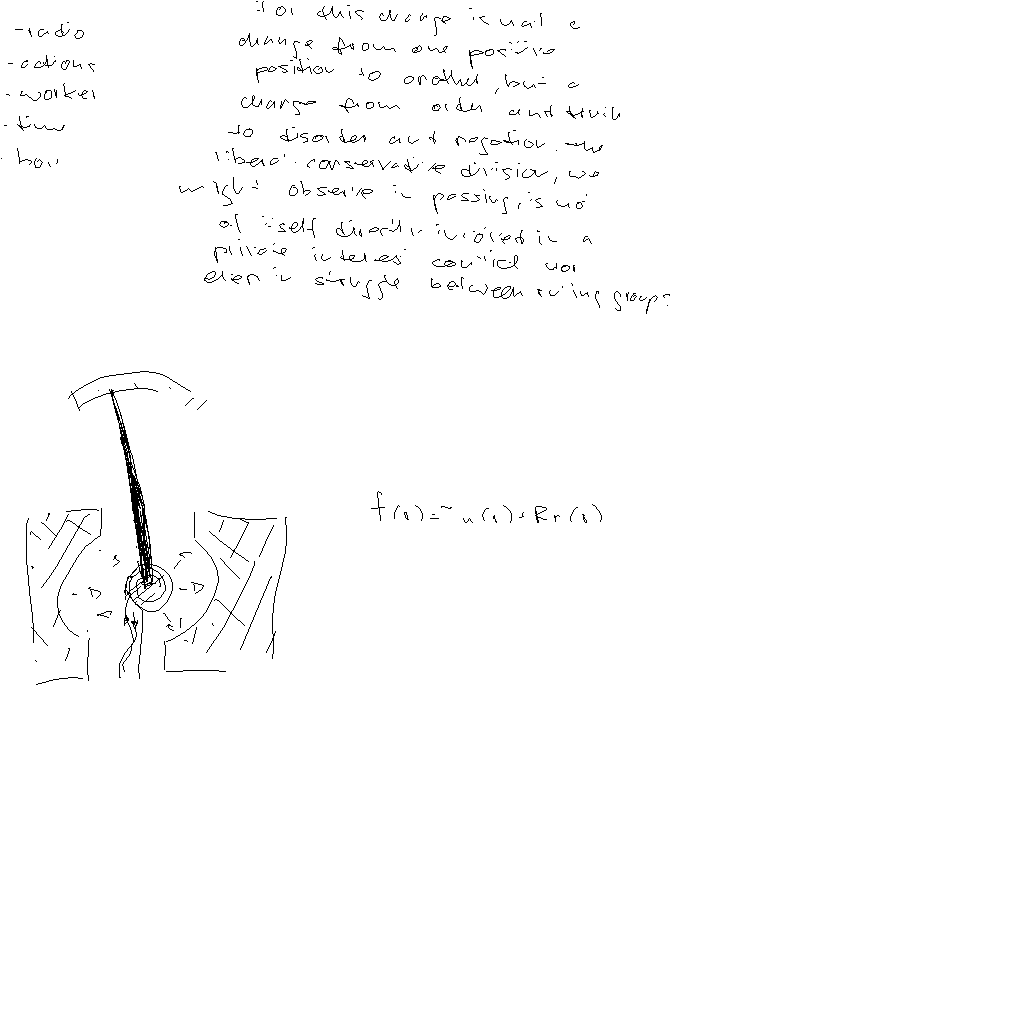 -radio
-actions
-worker
-time
For this change is not a
change from one positive
position to another, but a
change from order and truth
to disorder and negation. The
liberal-conservative division, we
might observe in passing, is not
of itself directly involved in a
private interest conflict nor
even in struggle between ruling groups